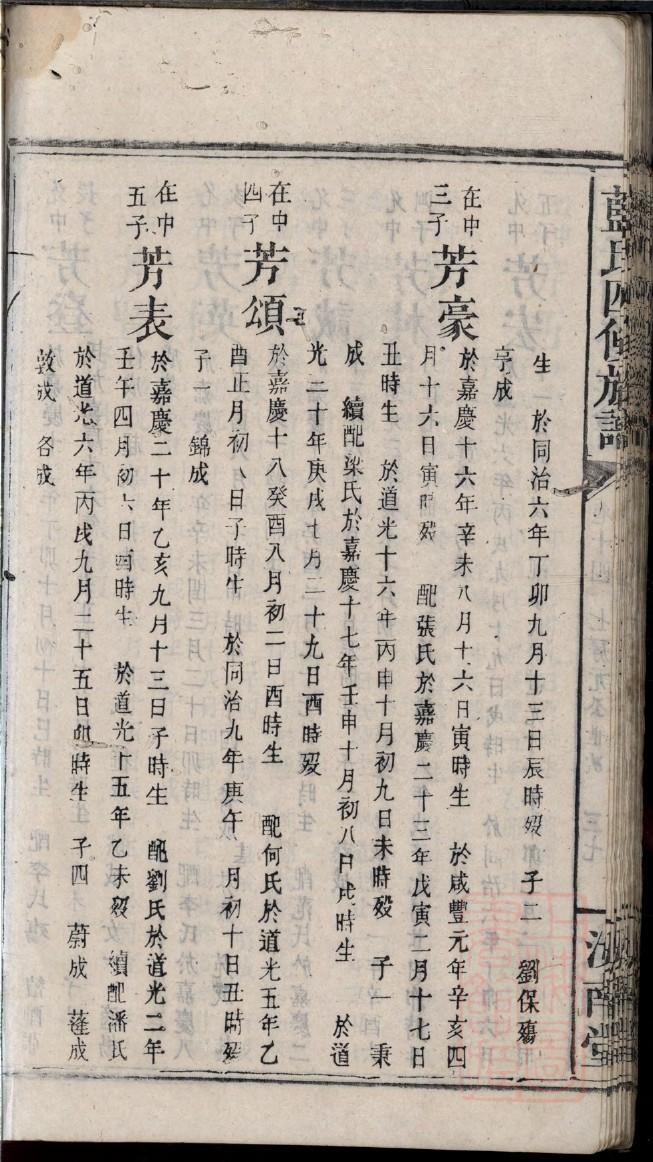 藍氏四修族譜
汝南堂
生 於同治六年丁卯九月十三日辰時歿 子二 劉保殤
亨成
在中三子 芳豪 於嘉慶十六年辛未八月十六日寅時生 於咸豐元年辛亥四
月十六日寅時歿 配張氏於嘉慶二十三年戊寅二月十七日
丑時生 於道光十六年丙申十月初九日未時歿 子一 秉
成 續配梁氏於嘉慶十七年壬申十月初八日戌時生 於道
光二十年庚戌七月二十九日酉時歿
在中四子 芳頌 於嘉慶十八癸酉八月初二日酉時生 配何氏於道光五年乙
酉正月初八日子時生 於同治九年庚午 月初十日丑時歿
子一 錦成
在中五子 芳表 於嘉慶二十年乙亥九月十三日子時生 配劉氏於道光二年
壬午四月初六日酉時生 於道光十五年乙未歿 續配潘氏
於道光六年丙戌九月二十五日卯時生 子四 蔚成 蓬成
敦成 各成